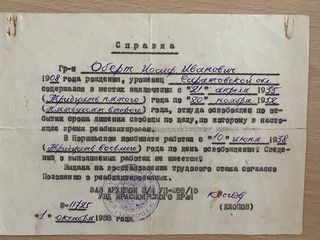 Справка
Гр-н Оберт Иосиф Иванович
1908 года рождения, уроженец Саратовской обл.
содержался в местах заключения с "21" апреля 1935
(Тридцать пятого) года по "20" ноября 1952
(Пятьдесят второго) года, откуда освобожден по отбы-
тии срока лишения свободы по делу, по которому в нас-
тоящее время реабилитирован.
В Норильском комбинате работал с "10" июня 1938
(Тридцать восьмого) года по день освобождения. Сведений
о выполняемых работах не имеется.
Выдана на восстановление трудового стажа согласно
Положению о реабилитации.
ЗАВ АРХИВОМ П/Я УП-288/15
УВД КРАСНОЯРСКОГО КРАЯ
(КЛОПОВ)
В-11725
"1" октября 1958 года.